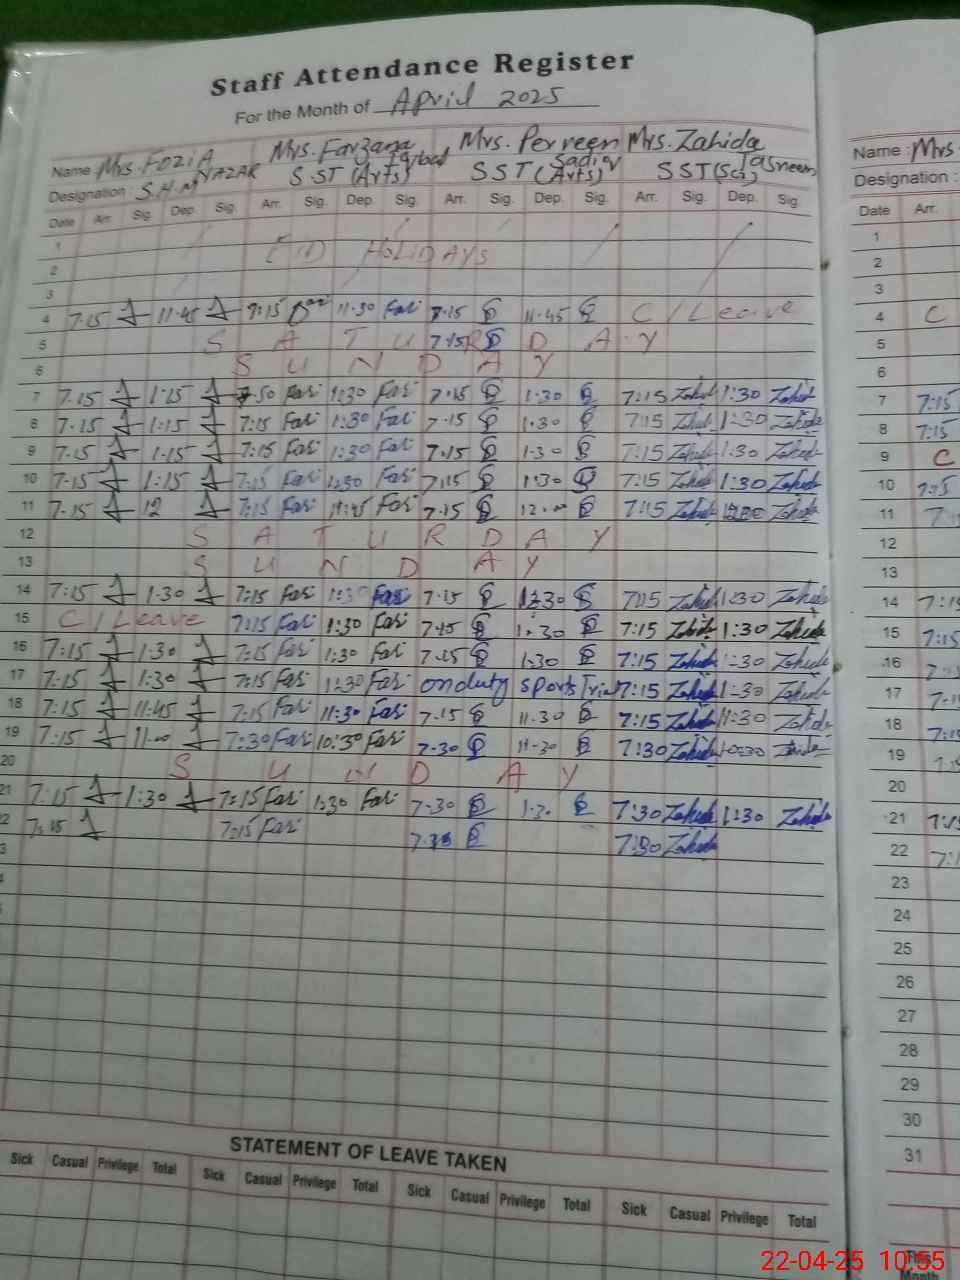 Staff Attendance Register
For the Month of April 2025
Name Mrs. FOZIA NAZAR Mrs. Farzana Mrs. Perveen Sadiq Mrs. Zahida Tasneem
Designation : S.H.M S.ST (Arts) SST (Arts) SST (Sci)
Date Arr. Sig. Dep. Sig. Arr. Sig. Dep. Sig. Arr. Sig. Dep. Sig. Arr. Sig. Dep. Sig.
1 EID HOLIDAYS
2
3
4 7.15 11.45 11.30 Far 7.15 11.45 C/Leave
5 S A T U R D A Y 7.15
6 S U N D A Y
7 7.15 1.15 Far 1:30 Far 7.15 1.30 7:15 Zahid 1:30 Zahid
8 7.15 1:15 7:15 Far 1:30 Far 7.15 1.30 7:15 Zahid 1:30 Zahida
9 7.15 1.15 7:15 Far 1:30 Far 7.15 1.30 7:15 Zahid 1:30 Zahida
10 7.15 1:15 7:15 Far 1:30 Far 7.15 1.30 7:15 Zahid 1:30 Zahida
11 7.15 12 7:15 Far Far 7.15 12.00 7:15 Zahid Zahida
12 S A T U R D A Y
13 S U N D A Y
14 7:15 1.30 7:15 Far 1:30 Far 7.15 7:15 Zahid 1:30 Zahida
15 C/Leave 7:15 Far 1:30 Far 7.15 1.30 7:15 Zahida 1:30 Zahida
16 7:15 1.30 7:15 Far 1:30 Far 7.15 1.30 7:15 Zahida 1:30 Zahida
17 7:15 1.30 7:15 Far Far on duty sports Trial 7:15 Zahida 1:30 Zahida
18 7:15 11:45 7:15 Far 11:30 Far 7.15 11.30 7:15 Zahida 11:30 Zahida
19 7:15 11.00 7:30 Far 10:30 Far 7.30 11.30 7:30 Zahida 10:30
20 S U N D A Y
21 7:15 1:30 7:15 Far 1:30 Far 7.30 1.30 7:30 Zahida 1:30 Zahida
2 7:15 7:15 Far 7.30 7:30 Zahida
3
STATEMENT OF LEAVE TAKEN
Sick Casual Privilege Total Sick Casual Privilege Total Sick Casual Privilege Total Sick Casual Privilege Total
Name : Mrs
Designation :
Date Arr.
1
2
3
4 C
5
6
7 7:15
8 7:15
9 C
10
11
12
13
14 7:15
15 7:15
16
17
18
19
20
21 7:15
22
23
24
25
26
27
28
29
30
31
This
Month
22-04-25 10:55